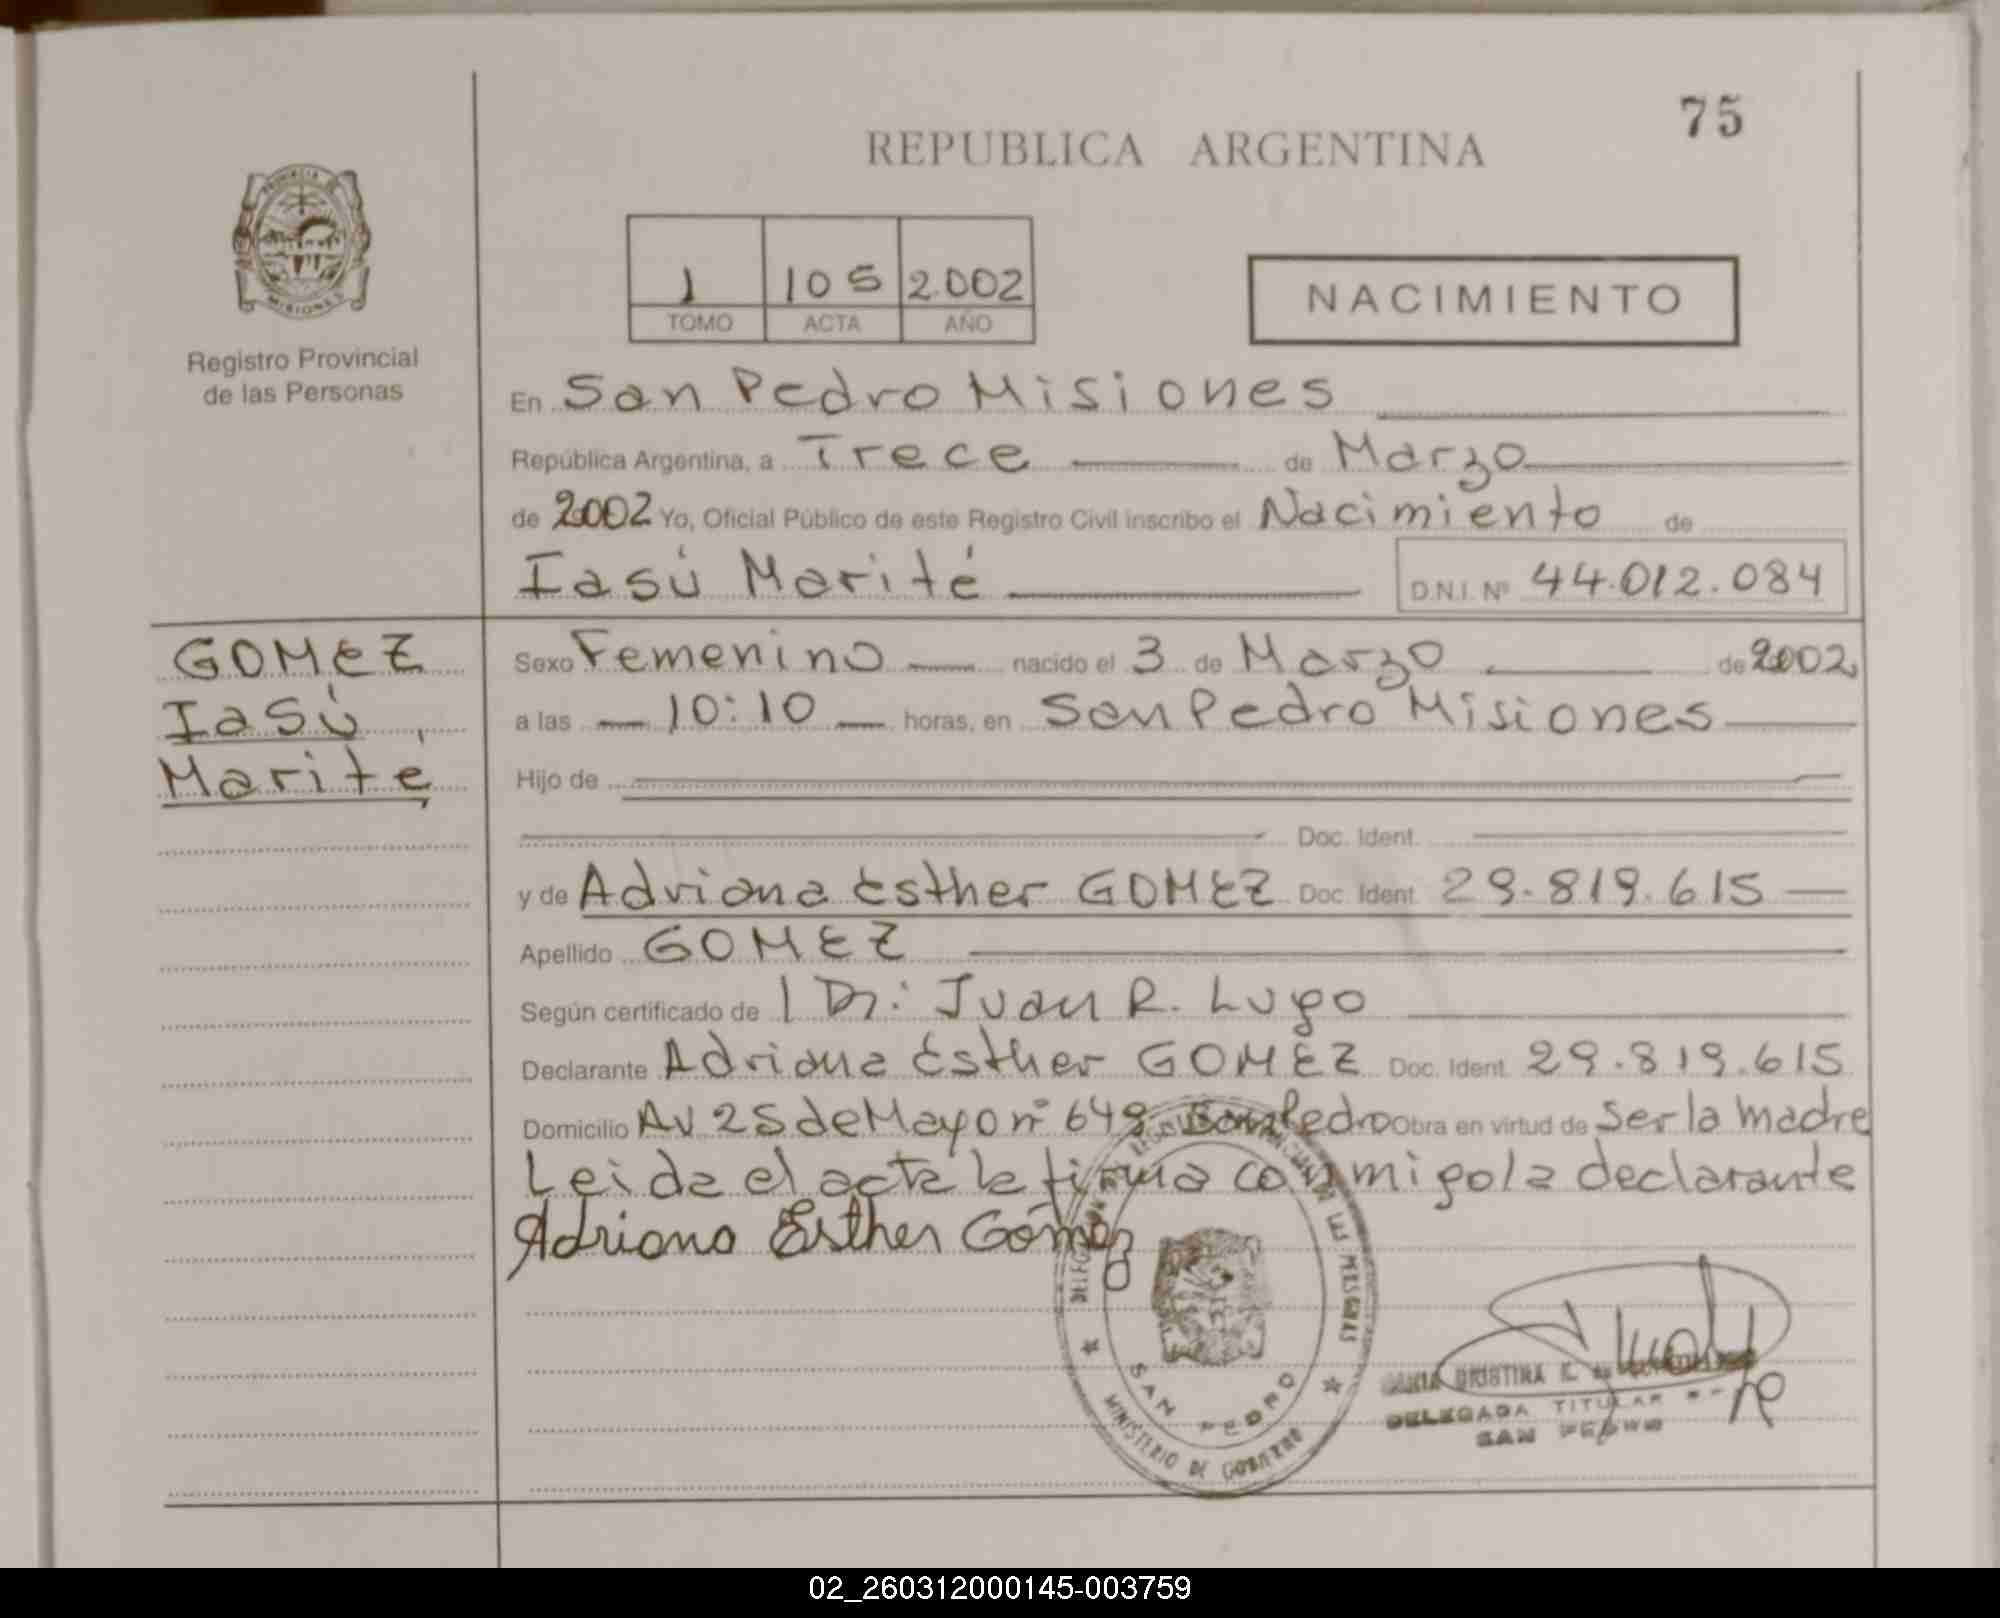 75
REPUBLICA ARGENTINA
PROVINCIA DE
MISIONES
Registro Provincial
de las Personas
1 105 2002
TOMO ACTA AÑO
NACIMIENTO
En San Pedro Misiones
República Argentina, a Trece de Marzo
de 2002 Yo, Oficial Público de este Registro Civil inscribo el Nacimiento de
Iasú Marité D.N.I. Nº 44.012.084
GOMEZ
Iasú
Marité
Sexo Femenino nacido el 3 de Marzo de 2002
a las 10:10 horas, en San Pedro Misiones
Hijo de
Doc. Ident.
y de Adriana Esther GOMEZ Doc. Ident. 29.819.615
Apellido GOMEZ
Según certificado de Dr: Juan R. Lugo
Declarante Adriana Esther GOMEZ Doc. Ident. 29.819.615
Domicilio Av 25 de Mayo nº 649 San Pedro Obra en virtud de Ser la madre
Leida el acta la firma conmigo la declarante
Adriana Esther Gómez
LAS PERSONAS
SAN PEDRO
MINISTERIO DE GOBIERNO
CRISTINA
DELEGADA TITULAR
SAN PEDRO
02_260312000145-003759